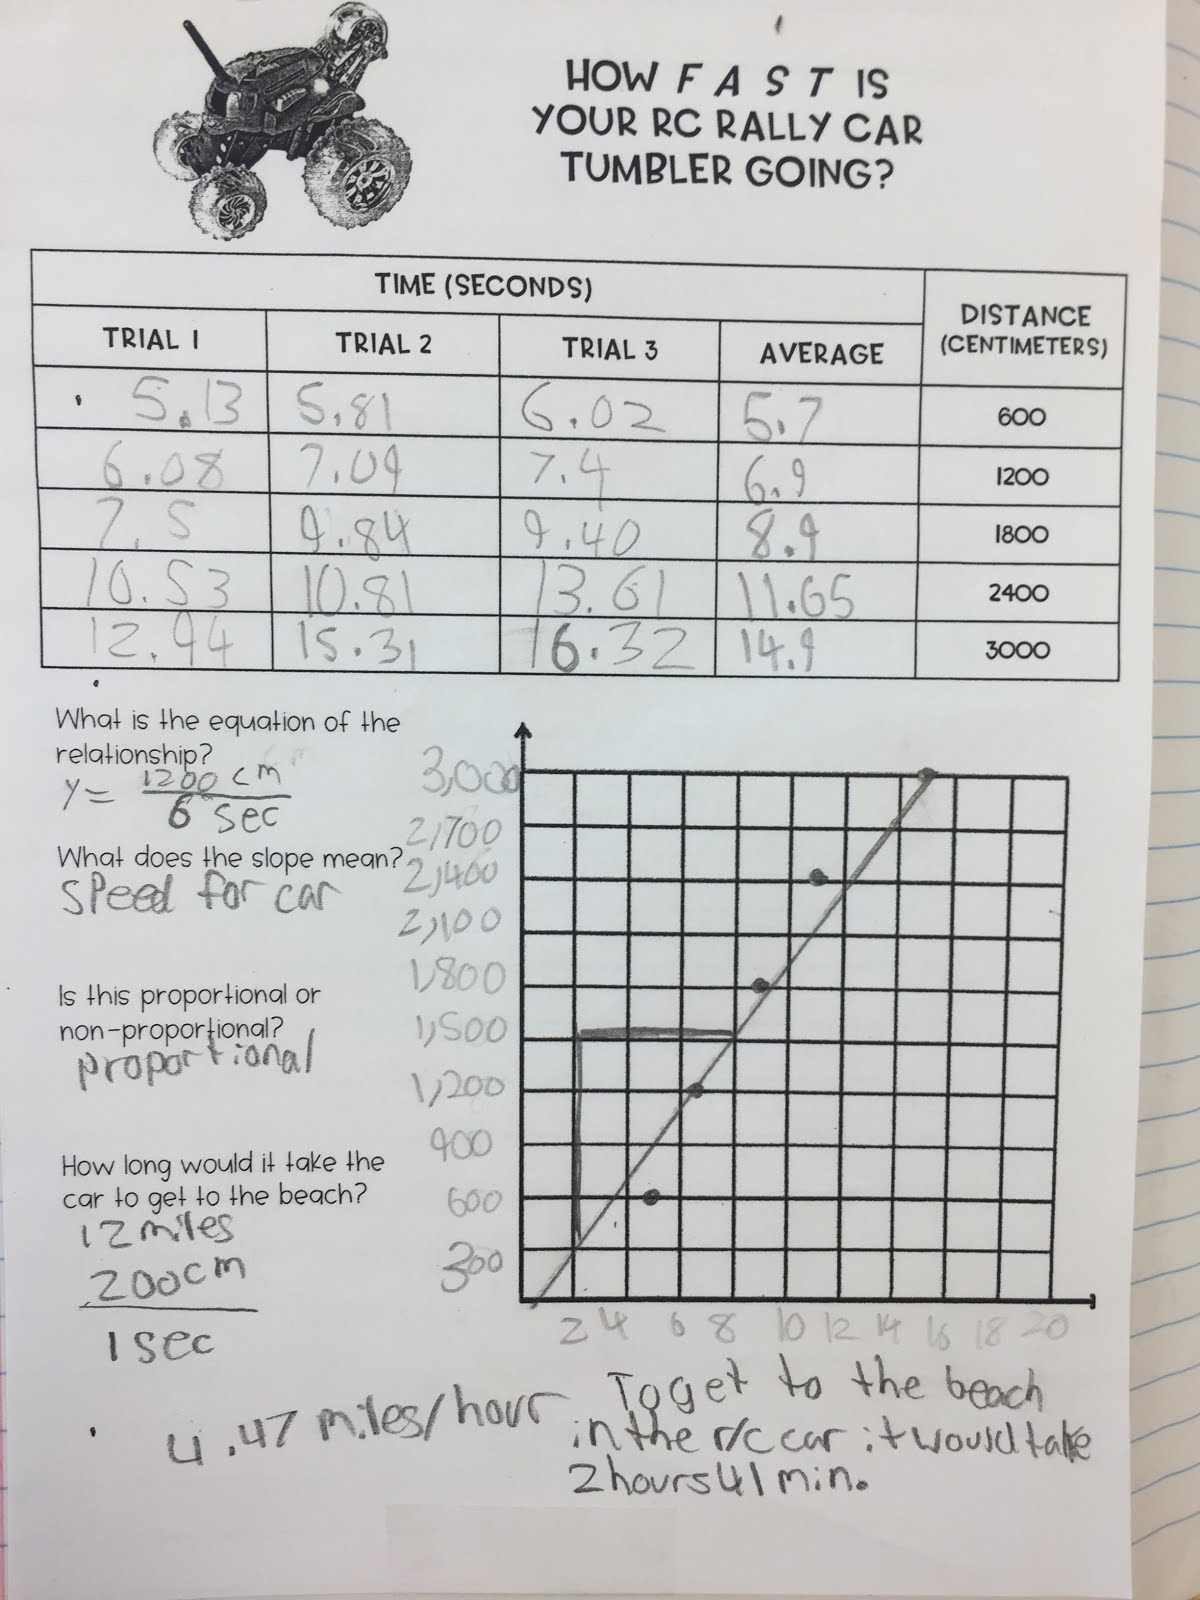 HOW F A S T IS
YOUR RC RALLY CAR
TUMBLER GOING?
TIME (SECONDS)
DISTANCE
(CENTIMETERS)
TRIAL 1 TRIAL 2 TRIAL 3 AVERAGE
5.13 5.81 6.02 5.7 600
6.08 7.09 7.4 6.9 1200
7.5 9.84 9.40 8.9 1800
10.53 10.81 13.61 11.65 2400
12.94 15.31 16.32 14.9 3000
What is the equation of the
relationship?
y = 1200 cm
6 sec
What does the slope mean?
speed for car
Is this proportional or
non-proportional?
proportional
How long would it take the
car to get to the beach?
12 miles
200cm
1 sec
3,000
2,700
2,400
2,100
1,800
1,500
1,200
900
600
300
2 4 6 8 10 12 14 16 18 20
4.47 miles/hour
To get to the beach
in the r/c car it would take
2 hours 41 min.